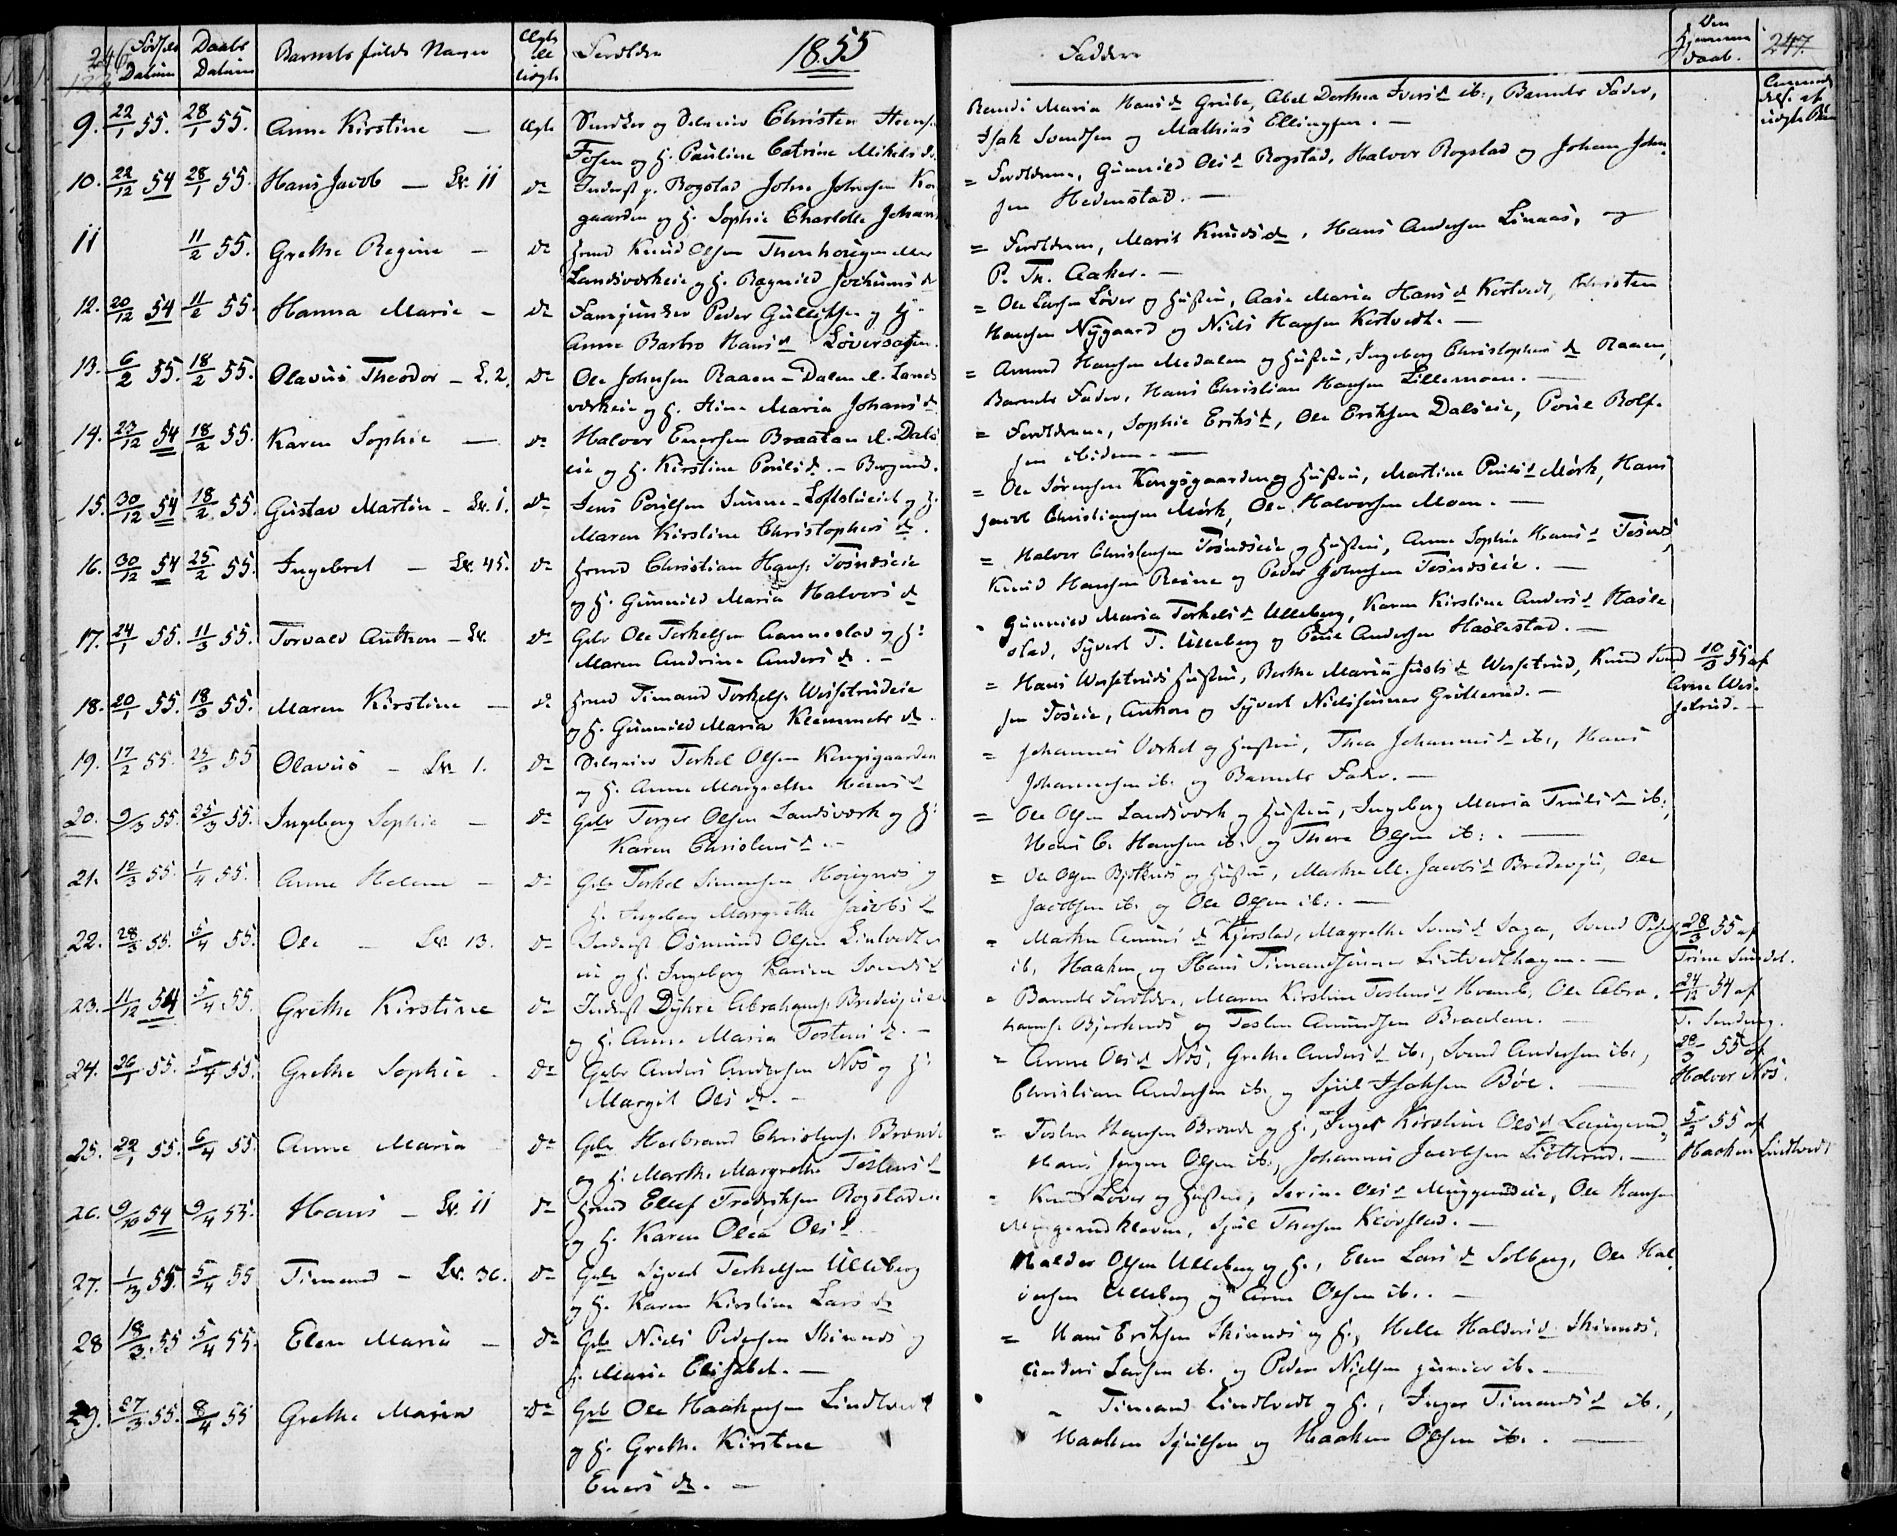 246. 1855 247.
Fødsels Datum Daabs Datum Barnets fulde Navn Ægte el. uægte Forældre Faddere Hjemme daab.
9. 22/1 55. 28/1 55. Anne Kirstine — Ægte Christen
Fosen og H. Pauline Catrine Mikelsd.
Maria Hansd. Grube, Abel Dorthea Iversd. ib., Barnets Fader,
Isak Svendsen og Mathias Ellingsen. —
10. 22/12 54 28/1 55. Hans Jacob — Sv. 11 do Inderst p. Rogstad John Johnsen
gaarden og H. Sophie Charlotte Johan
= Forældrene, Gunnild Olsd. Rogstad, Halvor Rogstad og Johan John
sen Hedenstad. —
11 11/2 55. Grethe Regine — do Hmd Knud Olsen
Landsværkeie og H. Ragnild Jochumsd.
= Forældrene, Marit Knudsd., Hans Andersen Linaas, og
P. Th. Aaker. —
12. 20/12 54 11/2 55. Hanna Marie — do Peder Gulliksen og H.
Anne Barbro Hansd. Løversagen.
= Ole Larsen Løver og Hustru, Aase Maria Hansd. Kortvedt, Christen
Hansen Nygaard og Niels Hansen Kortvedt. —
13. 6/2 55. 18/2 55. Olavus Theodor — L. 2. do Ole Johnsen Raaen — Dalen e. Lands
værkeie og H. Stine Maria Johansd.
= Amund Hansen Medalen og Hustru, Ingeborg Christophersd. Raaen,
Barnets Fader, Hans Christian Hansen Lillemoen. —
14. 23/12 54 18/2 55. Karen Sophie — do Halvor Enersen Braatan e. Dals
eie og H. Kirstine Poulsd. — Bergmd.
= Forældrene, Sophie Eriksd., Ole Eriksen Dalseie, Poul Rolf-
sen ibidem. —
15. 30/12 54 18/2 55. Gustav Martin — Sv. 1. do Jens Poulsen og H.
Maren Kirstine Christophersd.
= Ole Sørensen Kongsgaarden og Hustru, Martine Poulsd. Mørk, Hans
Jacob Christiansen Mørk, Ole Halvorsen Moen. —
16. 30/12 54 25/2 55. Ingebret — Sv. 45. do Hmd Christian Hans. Tosundseie
og H. Gunnild Maria Halvorsd.
= Halvor Christensen Tosundseie og Hustru, Anne Sophie Hansd.
Knud Hansen Reine og Peder Johnsen Tosundseie. —
17. 24/1 55. 11/3 55. Torvald Anthon — Sv. do Gbr Ole Terkelsen og H:
Maren Andrine Andersd. —
Gunnild Maria Terkelsd. Ulleberg, Karen Kirstine Andersd. Hasle
stad, Syvert T. Ulleberg og Poul Andersen Haslestad. —
18. 20/1 55. 18/3 55. Maren Kirstine — do Hmd Timand Terkels. Wessetrudeie
og H. Gunnild Maria Klemmetsd.
= Hans Wessetruds Hustru, Berthe Maria Justsd. Wessetrud, Knud Svend 10/3 55 af
sen Toseie, Anthon og Syvert Nielssønner Grøtterud. — Arne Wes-
setrud. —
19. 17/2 55. 25/3 55 Olavus — Sv. 1. do Terkel Olsen Kongsgaarden
og H. Anne Margrethe Hansd.
= Johannes Værket og Hustru, Thea Johannesd. ib., Hans
Johannesen ib. og Barnets Fader. —
20. 9/3 55. 25/3 55. Ingeborg Sophie — do Gbr Torger Olsen Landsværk og H:
Karen Christensd. —
= Ole Olsen Landsværk og Hustru, Ingeborg Maria Trulsd. ib.,
Hans C. Hansen ib. og Thore Olsen ib: . —
21. 12/3 55. 1/4 55. Anne Helene — do Gbr Terkel Simensen og
H. Ingeborg Margrethe Jacobsd.
= Ole Olsen og Hustru, Marthe M. Jacobsd. Bredesju, Ole
Jacobsen ib. og Ole Olsen ib. —
22. 28/3 55. 5/4 55. Ole — Sv. 13. do Inderst Osmund Olsen Lintvedt
eie og H. Ingeborg Karine Svendsd.
= Marthe Amunsd. Kjerstad, Magrethe Svensd. Saga, Svend Peders. 28/3 55 af
ib., Haaken og Hans Timandsønner Lintvedthagen. — Trine
23. 11/12 54 5/4 55. Grethe Kirstine do Inderst Dyhre Abrahams. Bredesjueie
og H. Anne Maria Tostensd. —
= Barnets Forældre, Maren Kirstine Tostensd. , Ole Abra- 24/12 54 af
hams. Bjerknes og Tosten Amundsen Braatan. —
24. 26/1 55. 5/4 55. Grethe Sophie do Gbr Anders Andersen Nøs og H:
Margit Olsd. —
= Anne Olsd. Nøs, Grethe Andersd. ib., Svend Andersen ib., 55 af
Christian Andersen ib. og Sjul Isaksen Bøe. — Halvor Nøs.
25. 22/1 55. 6/4 55. Anne Maria do Gbr Herbrand Christens.
og H. Marthe Margrethe Tostensd.
= Tosten Hansen og H., Inger Kirstine Olsd. Laugerud, 5/2 55 af
Hans Jørgen Olsen ib., Johannes Jacobsen . — Haaken Lindtvedt
26. 9/10 54 9/4 55. Hans — Sv. 11 do Hmd Ellef Fredriksen Rogstadeie
og H. Karen Olea Olsd.
= Knud Løver og Hustru, Serine Olsd. Muggerudeie, Ole Hansen
Muggerudkleven, Sjul Thorsen Kløvstad. —
27. 1/3 55. 5/4 55 Timand — Sv. 36. do Gbr Syvert Terkelsen Ulleberg
og H. Karen Kirstine Larsd.
Halder Olsen Ulleberg og H., Elen Larsd. Solberg, Ole Hal
vorsen Ulleberg og Arne Olsen ib. . —
28 18/3 55 5/4 55. Elen Maria — do Gbr Niels Pedersen Skinnes og
H. Marie Elisabet. —
= Hans Eriksen Skinnes og H., Helle Haldersd. Skinnes,
Anders Larsen ib. og Peder Nielsen junior ib. —
29. 27/3 55. 8/4 55 Grethe Maria do Gbr Ole Haakensen Lindtvedt
og H. Grethe Kirstine
Enersd. —
= Timand Lindtvedt og H., Inger Timandsd. ib.,
Haaken Sjulsen og Haaken Olsen ib. . —